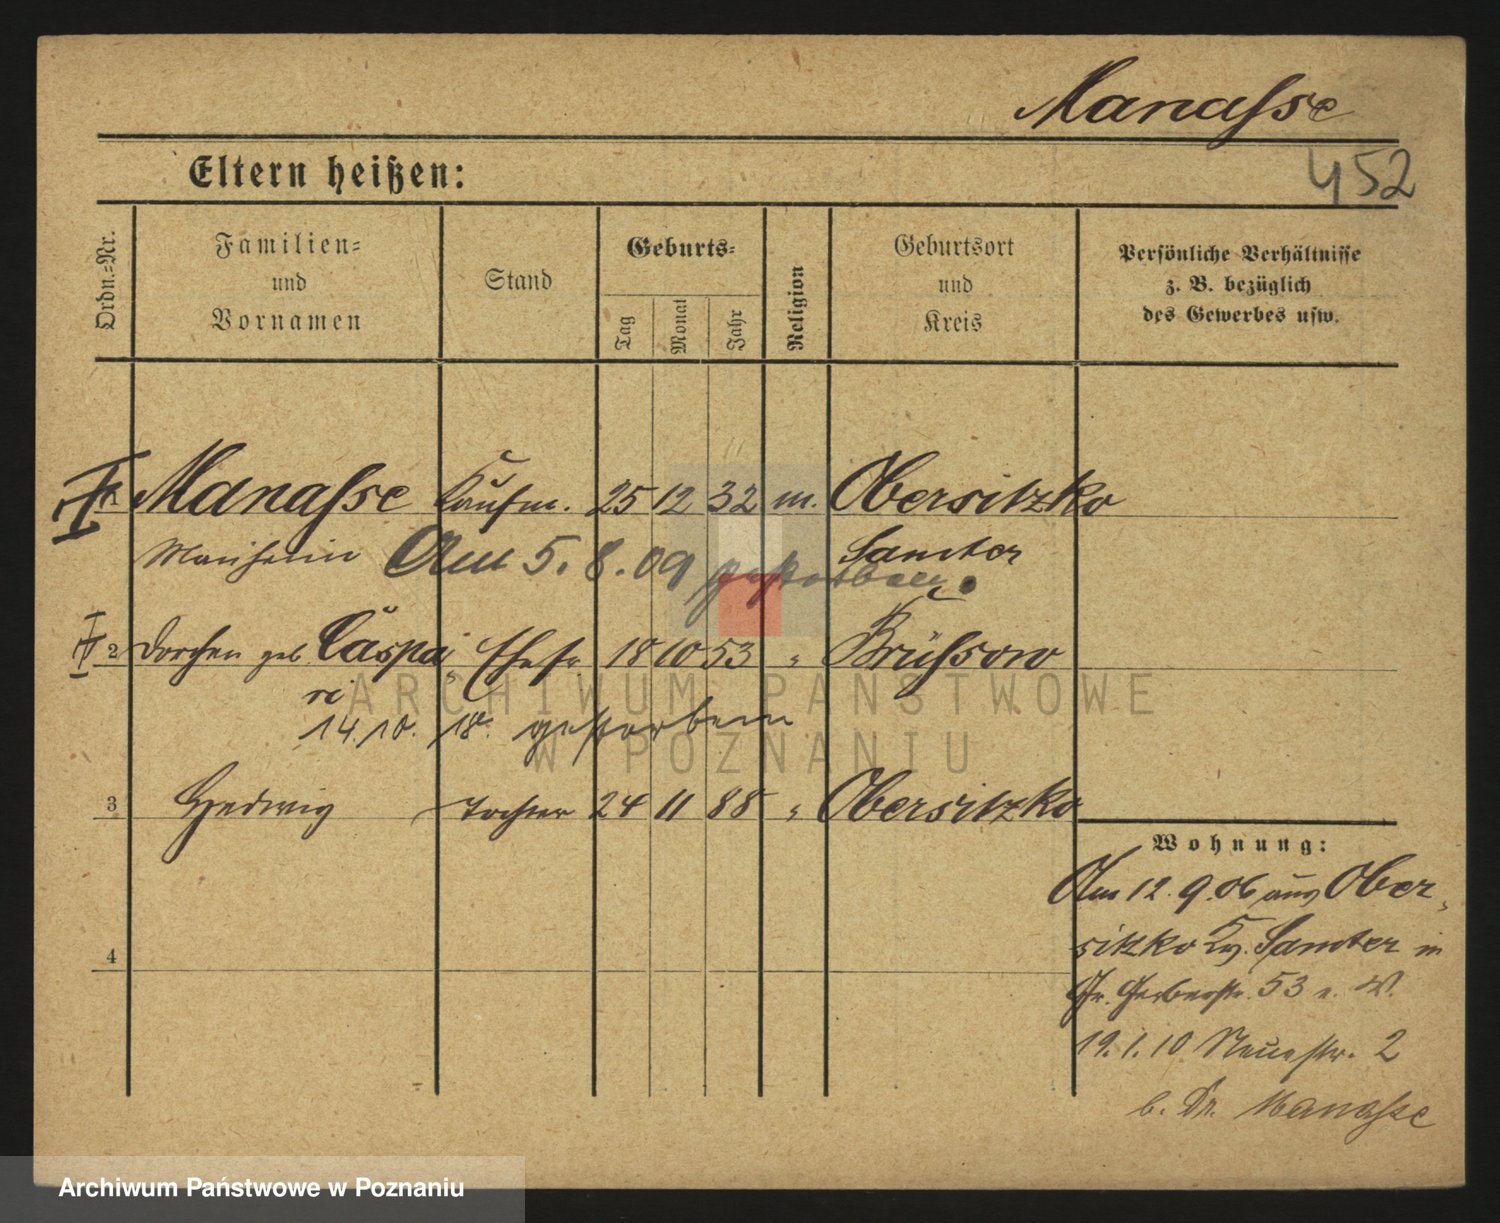 Manasse
452
Eltern heißen:
Ordn.-Nr.
Familien-
und
Vornamen
Stand
Geburts-
Tag
Monat
Jahr
Religion
Geburtsort
und
Kreis
Persönliche Verhältnisse
z. B. bezüglich
des Gewerbes usw.
1 Manasse Kaufm. 25 12 32 m. Obersitzko
Am 5. 8. 09 gestorben. Samter
2 Dorchen geb. Caspa Ehefr. 18 10 53 " Brüssow
ri
14.10. 18. gestorben
3 Hedwig Tochter 24 11 88 " Obersitzko
4
Wohnung:
Am 12. 9. 06 aus Ober-
sitzko Kr. Samter in
Gr. Gerberstr. 53 e. W.
19. 1. 10 Neuestr. 2
b. Dr. Manasse
ARCHIWUM PAŃSTWOWE
W POZNANIU
Archiwum Państwowe w Poznaniu